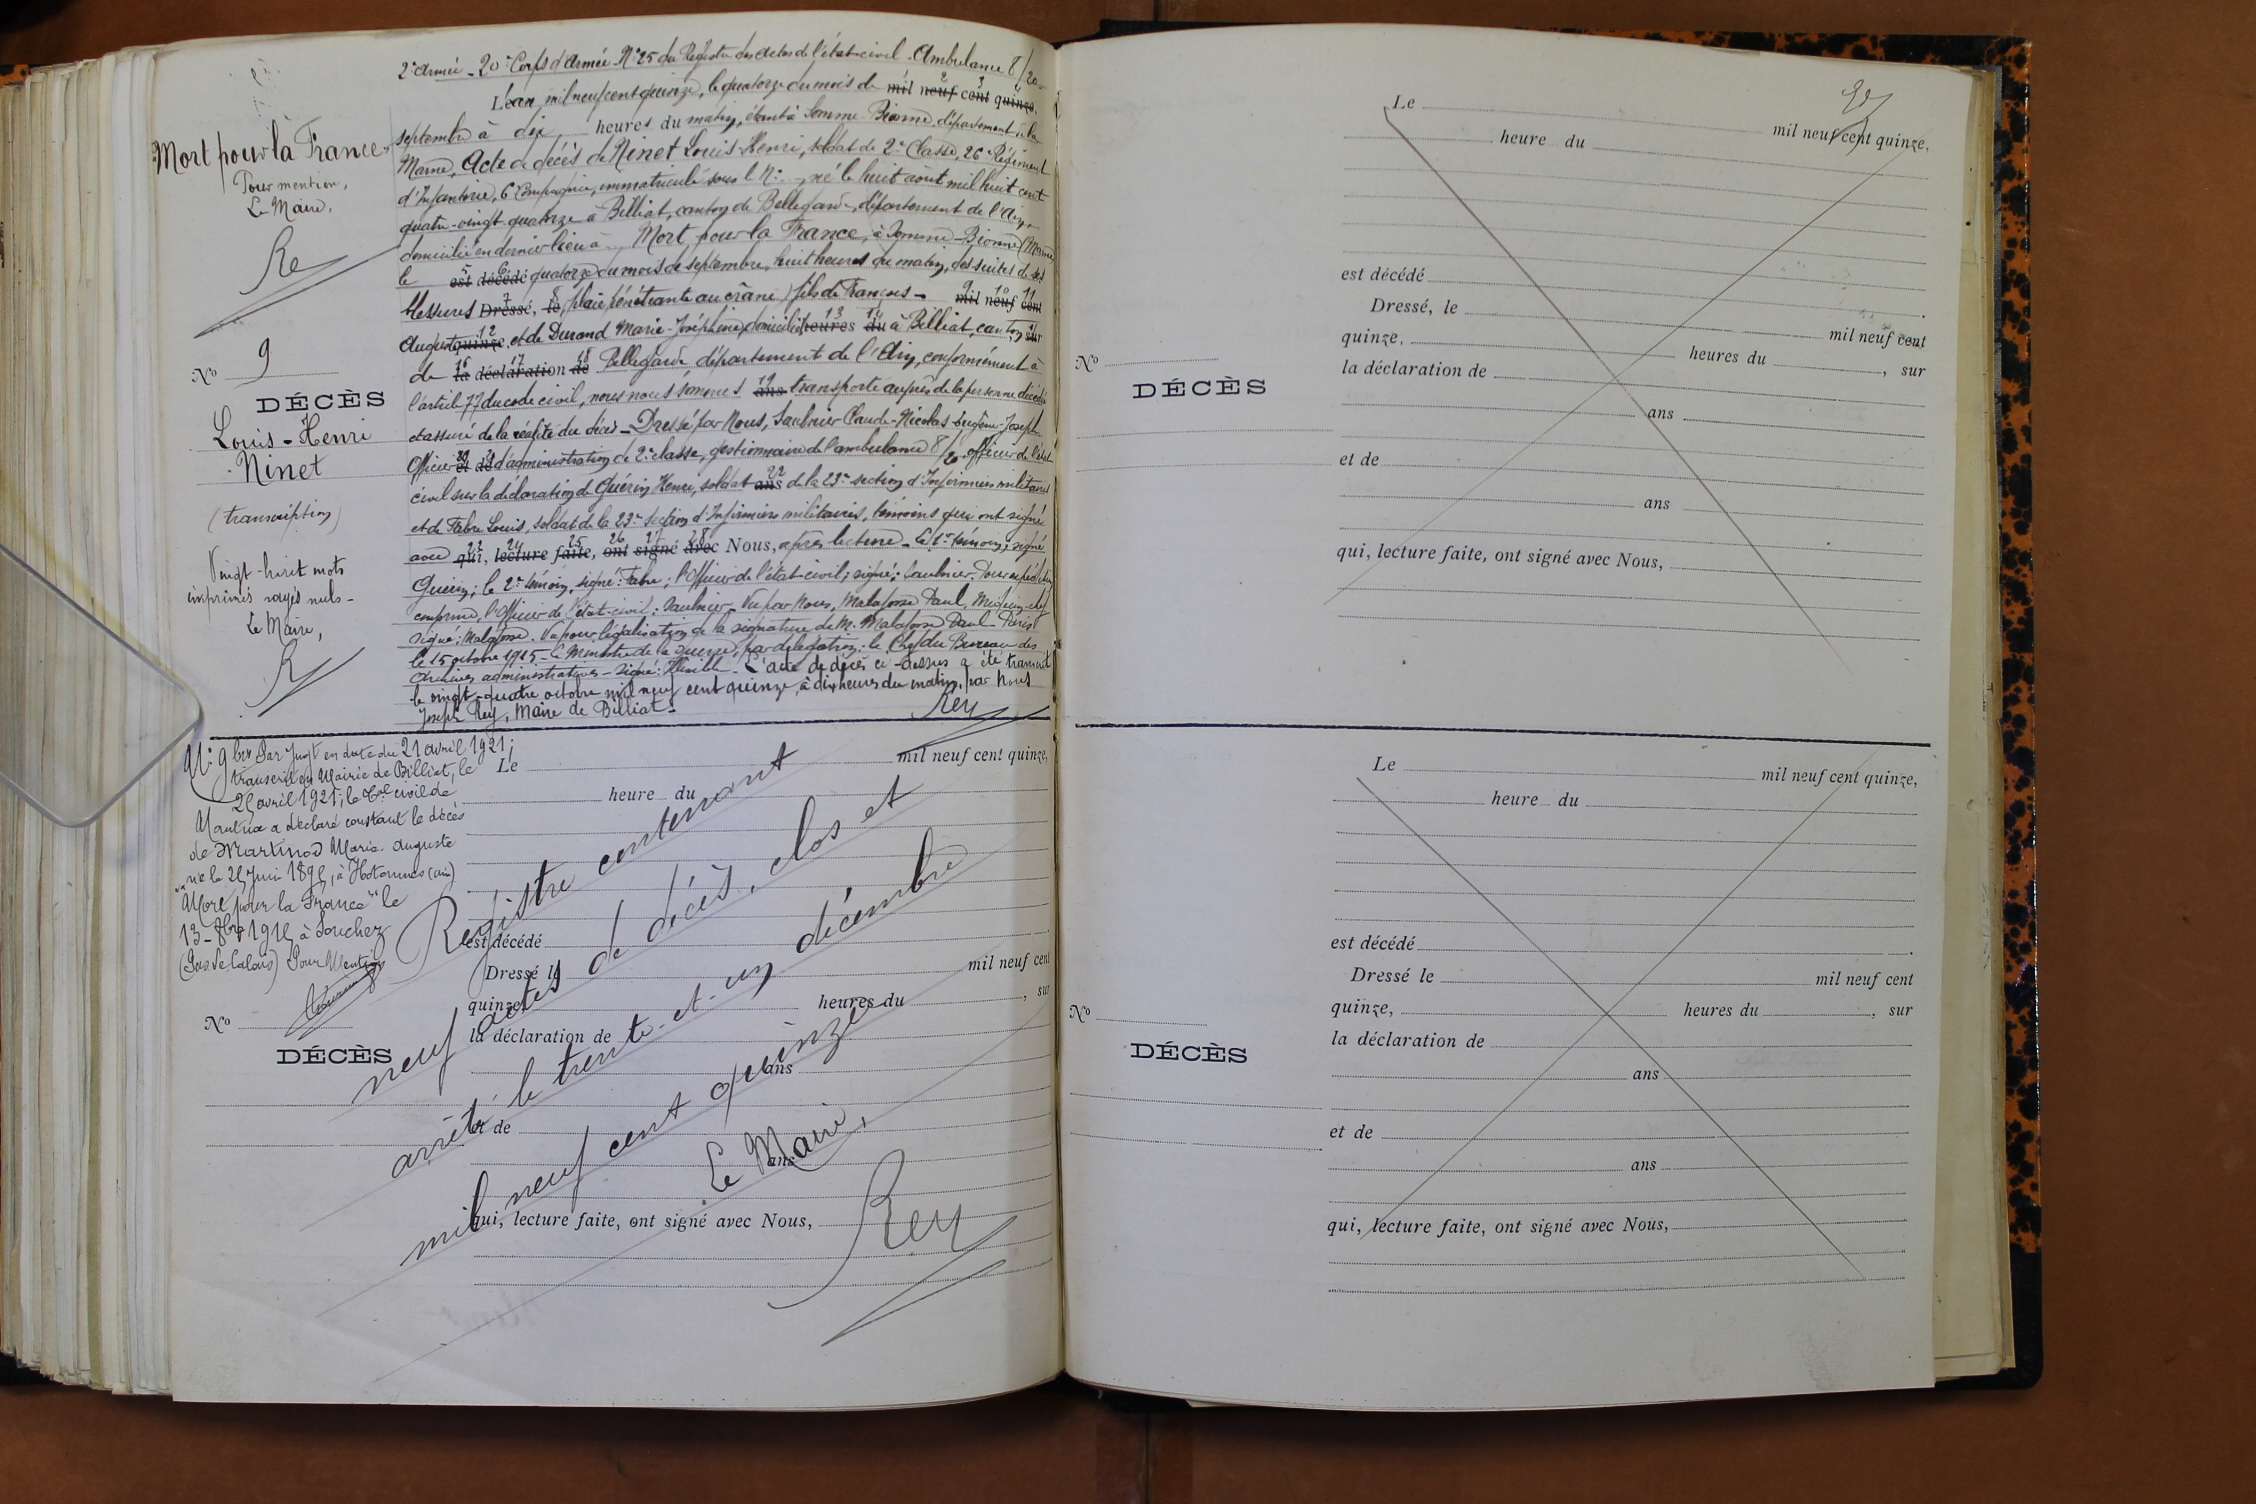 2e Armée - 20e Corps d'Armée - No 25 du Registre des actes de l'état-civil. Ambulance 8/20 -
L'an mil neuf cent quinze, le quatorze du mois de mil neuf cent quinze,
septembre à dix heures du matin, étant à Somme-Bionne, département de la
Marne, Acte de décès de Ninet Louis-Henri, soldat de 2e Classe, 26e Régiment
d'Infanterie, 6e Compagnie, immatriculé sous le No - né le huit août mil huit cent
quatre-vingt quatorze à Billiat, canton de Bellegarde, département de l'Ain,
domicilié en dernier lieu à - Mort pour la France, à Somme-Bionne (Marne)
le est décédé quatorze du mois de septembre, huit heures du matin, des suites de ses
blessures Dressé, le (plaie pénétrante au crâne) fils de François - mil neuf cent
Auguste quinze, et de Durand Marie-Joséphine, domiciliés heures du à Billiat, canton sur
de la déclaration de Bellegarde, département de l'Ain, conformément à
l'article 77 du code civil, nous nous sommes ans transporté auprès de la personne décédée
et assuré de la réalité du décès - Dressé par Nous, Saulnier Claude-Nicolas-Eugène-Joseph
Officier et de d'administration de 2e classe, gestionnaire de l'ambulance 8/20 officier de l'état
civil sur la déclaration de Guérin Henri, soldat ans de la 23e section d'Infirmiers militaires
et de Fabre Louis, soldat de la 23e section d'Infirmiers militaires, témoins qui ont signé
avec qui, lecture faite, ont signé avec Nous, après lecture - Le 1er témoin, signé
Guérin; le 2e témoin, signé: Fabre; l'Officier de l'état-civil; signé: Saulnier. Pour expédition
conforme, l'Officier de l'état-civil: Saulnier - Vu par Nous, Malafosse Paul, Médecin-chef
signé: Malafosse. Vu pour légalisation de la signature de M. Malafosse Paul - Paris
le 15 octobre 1915 - Le Ministre de la Guerre, par délégation: le Chef du Bureau des
Archives administratives - signé: - L'acte de décès ci-dessus a été transcrit
le vingt-quatre octobre mil neuf cent quinze, à dix heures du matin, par Nous
Joseph Rey, Maire de Billiat -
Rey
Mort pour la France
Pour mention,
Le Maire,
Re
No 9
DÉCÈS
Louis-Henri
Ninet
(transcription)
Vingt-huit mots
imprimés rayés nuls -
Le Maire,
R
No 9 bis Par Jugt en date du 21 avril 1921;
transcrit en Mairie de Billiat, le
avril 1921; le Bal civil de
Nantua a déclaré constant le décès
de Martinod Marie Auguste
né le Juin, à Hotonnes (Ain)
"Mort pour la France" le
13 - 8bre, à Souchez
(Pas de Calais) Pour Mention
No
DÉCÈS
Le mil neuf cent quinze,
heure du
est décédé
Dressé le mil neuf cent
quinze, heures du , sur
la déclaration de
ans
et de
ans
qui, lecture faite, ont signé avec Nous,
Registre contenant
neuf actes de décès, clos et
arrêté le trente-et-un décembre
mil neuf cent quinze
Le Maire,
Rey
Le mil neuf cent quinze,
heure du
est décédé
Dressé, le mil neuf cent
quinze, heures du , sur
la déclaration de
No
DÉCÈS
ans
et de
ans
qui, lecture faite, ont signé avec Nous,
Le mil neuf cent quinze,
heure du
est décédé
Dressé le mil neuf cent
quinze, heures du , sur
la déclaration de
No
DÉCÈS
ans
et de
ans
qui, lecture faite, ont signé avec Nous,